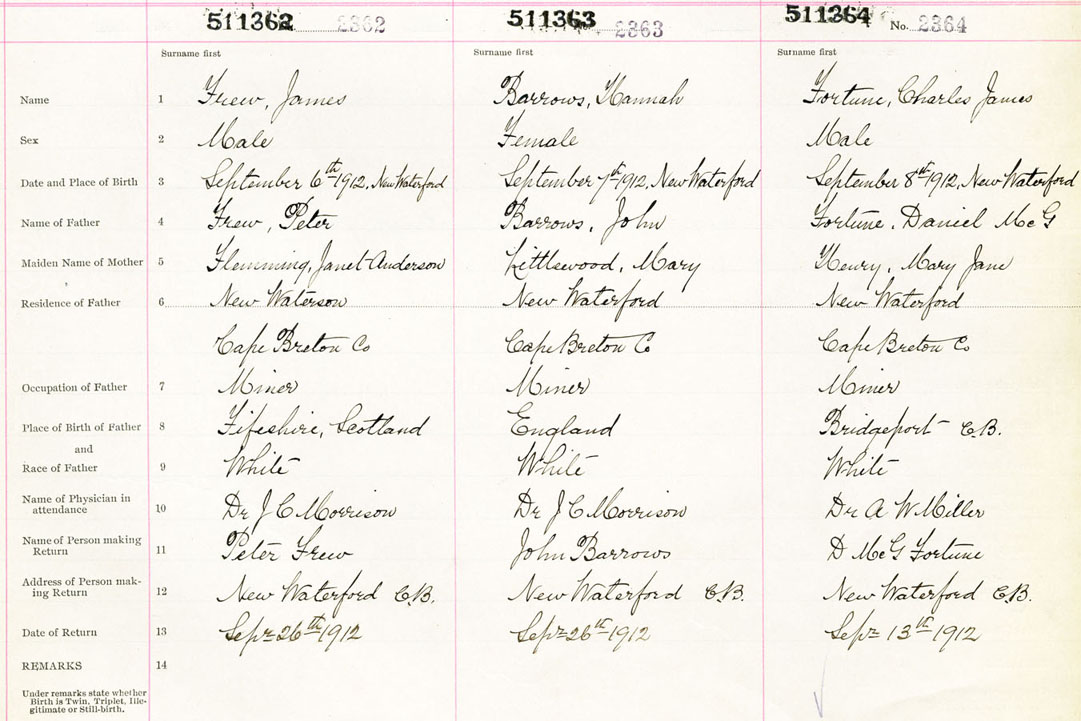 511362 2362 511363 2363 511364 No. 2364
Surname first Surname first Surname first
Name 1 Frew, James Barrows, Hannah Fortune, Charles James
Sex 2 Male Female Male
Date and Place of Birth 3 September 6th 1912, New Waterford September 7th 1912, New Waterford September 8th 1912, New Waterford
Name of Father 4 Frew, Peter Barrows, John Fortune, Daniel McG
Maiden Name of Mother 5 Flemming, Janet Anderson Littlewood, Mary Henry, Mary Jane
Residence of Father 6 New Waterson New Waterford New Waterford
Cape Breton Co Cape Breton Co Cape Breton Co
Occupation of Father 7 Miner Miner Miner
Place of Birth of Father 8 Fifeshire, Scotland England Bridgeport C.B.
and
Race of Father 9 White White White
Name of Physician in
attendance 10 Dr J C Morrison Dr J C Morrison Dr A W Miller
Name of Person making
Return 11 Peter Frew John Barrows D McG Fortune
Address of Person mak-
ing Return 12 New Waterford C.B. New Waterford C.B. New Waterford C.B.
Date of Return 13 Sepr 26th 1912 Sepr 26th 1912 Sepr 13th 1912
REMARKS 14
Under remarks state whether
Birth is Twin, Triplet, Ille-
gitimate or Still-birth.